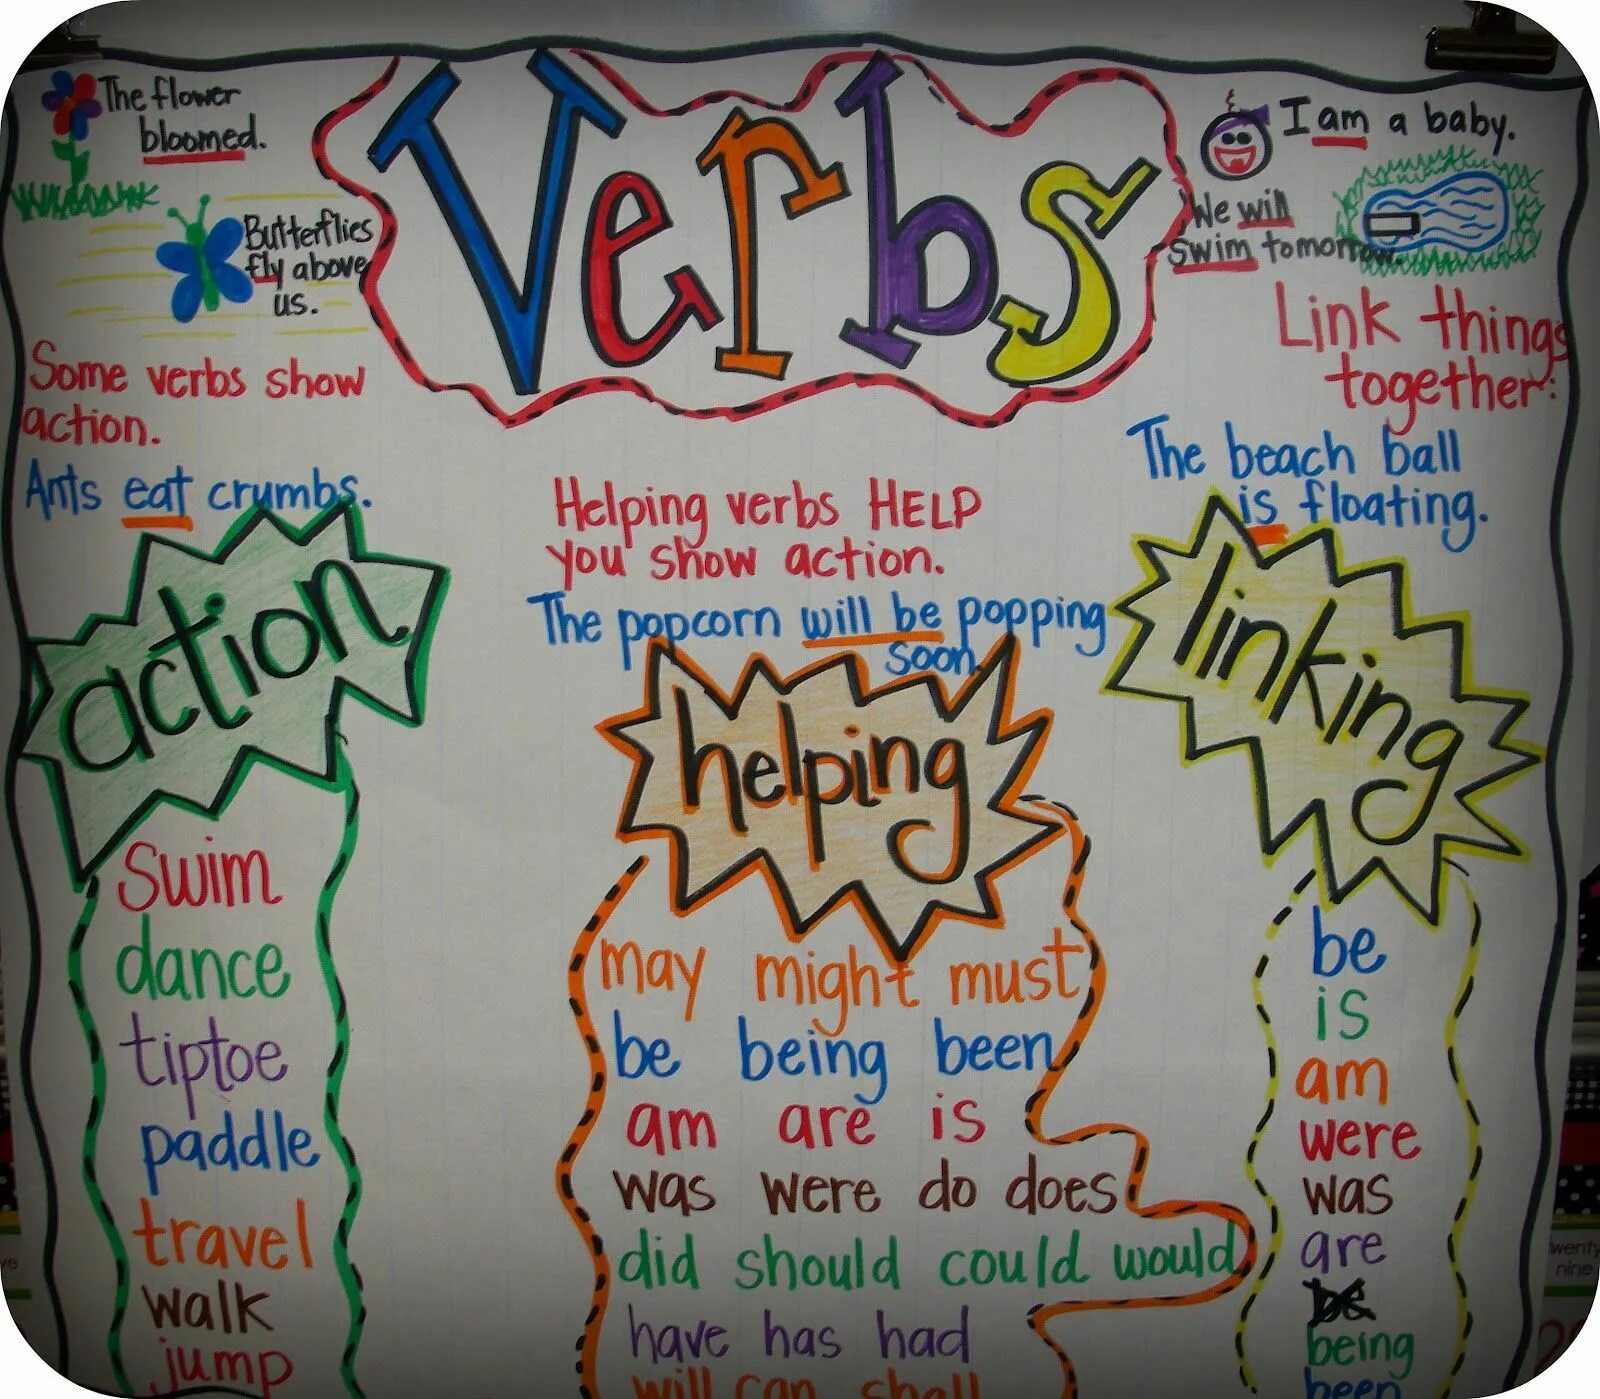 Verbs
The flower
bloomed.
Butterflies
fly above
us.
Some verbs show
action.
Ants eat crumbs.
action
swim
dance
tiptoe
paddle
travel
walk
jump
Helping verbs HELP
you show action.
The popcorn will be popping
soon.
helping
may might must
be being been
am are is
was were do does
did should could would
have has had
will can shall
I am a baby.
We will
swim tomorrow.
Link things
together:
The beach ball
is floating.
linking
be
is
am
were
was
are
be
being
been
twenty
nine